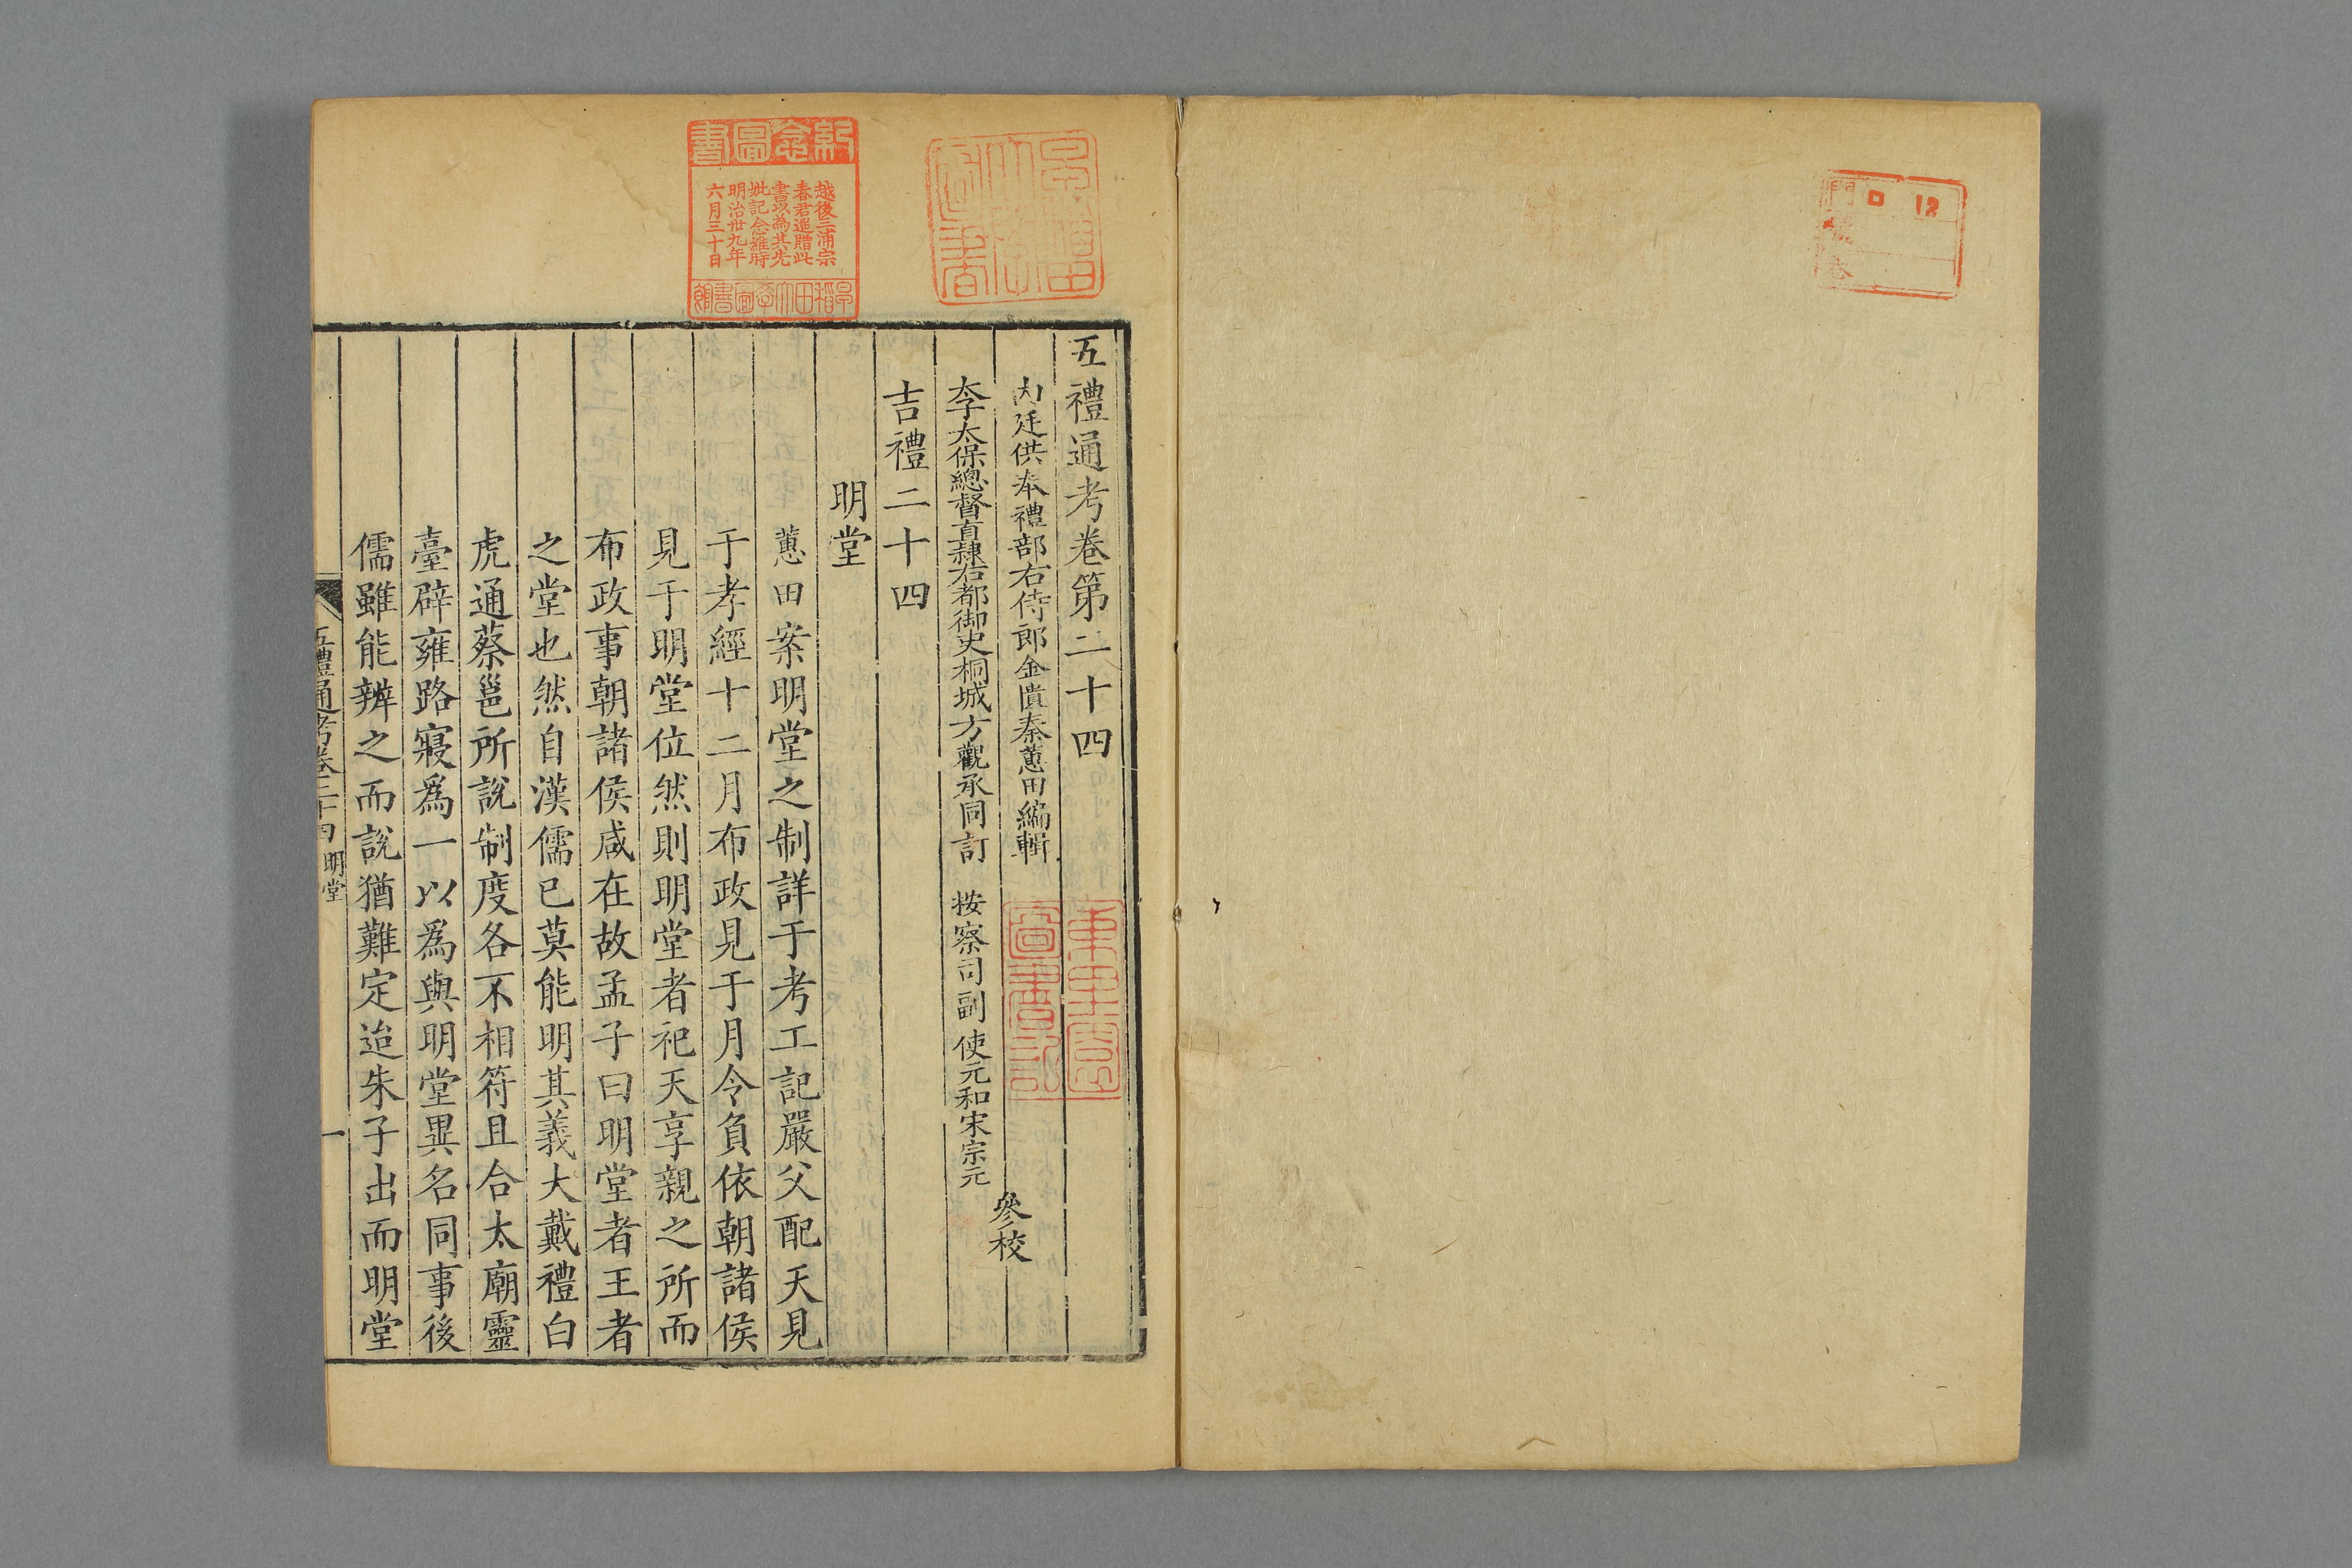 門 口 12
號
卷
五禮通考卷第二十四
内廷供奉禮部右侍郎金匱秦蕙田編輯
太子太保總督直隸右都御史桐城方觀承同訂 按察司副使元和宋宗元
參校
吉禮二十四
明堂
蕙田案明堂之制詳于考工記嚴父配天見
于孝經十二月布政見于月令負依朝諸侯
見于明堂位然則明堂者祀天享親之所而
布政事朝諸侯咸在故孟子曰明堂者王者
之堂也然自漢儒已莫能明其義大戴禮白
虎通蔡邕所說制度各不相符且合太廟靈
臺辟雍路寢爲一以爲與明堂異名同事後
儒雖能辨之而說猶難定迨朱子出而明堂
五禮通考卷二十四 明堂
一
早稻田大學圖書
紀念圖書
越後三浦宗
春君遥贈此
書以為其先
妣記念維時
明治卅九年
六月三十日
早稻田大學圖書館
圖書記